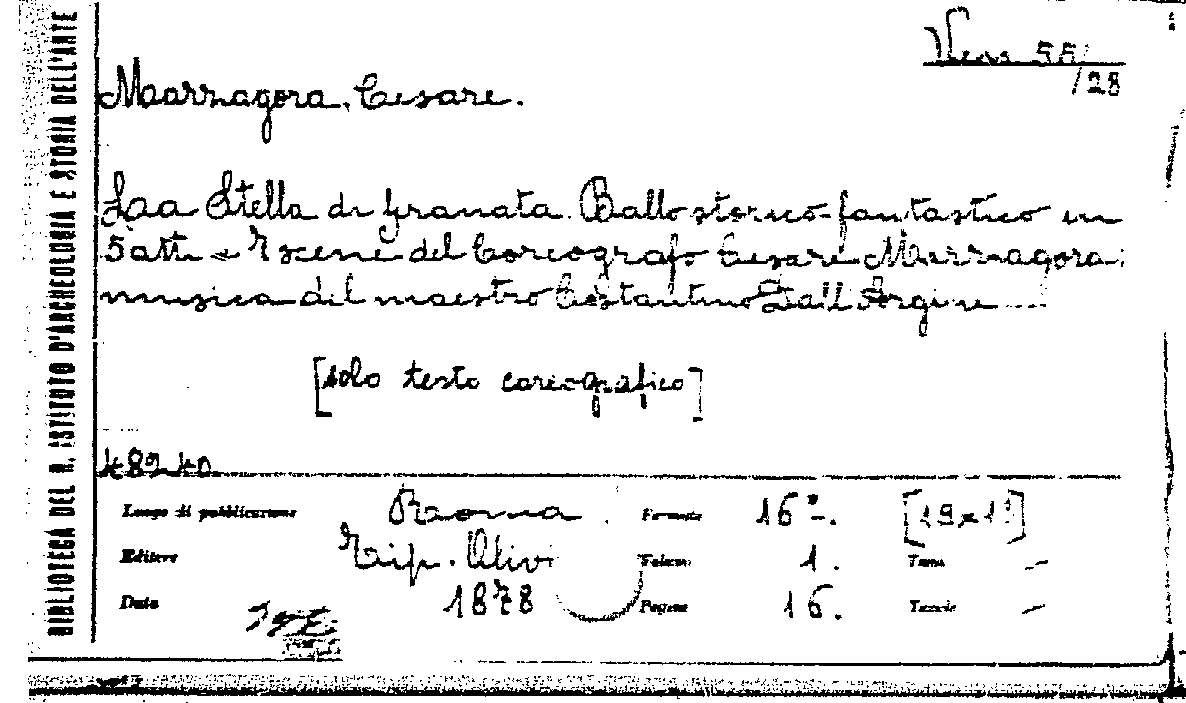 BIBLIOTECA DEL R. ISTITUTO D'ARCHEOLOGIA E STORIA DELL'ARTE
55
/28
Marzagora, Cesare.
La Stella di Granata. Ballo storico-fantastico in
5 atti e 7 scene del Coreografo Cesare Marzagora:
musica del maestro Costantino Dall'Argine
[solo testo coreografico]
48940
Luogo di pubblicazione Roma. Formato 16°. [19x1
Editore Tip. Olivi Volumi 1. Tomi —
Data 1878 Pagine 16. Tavole —